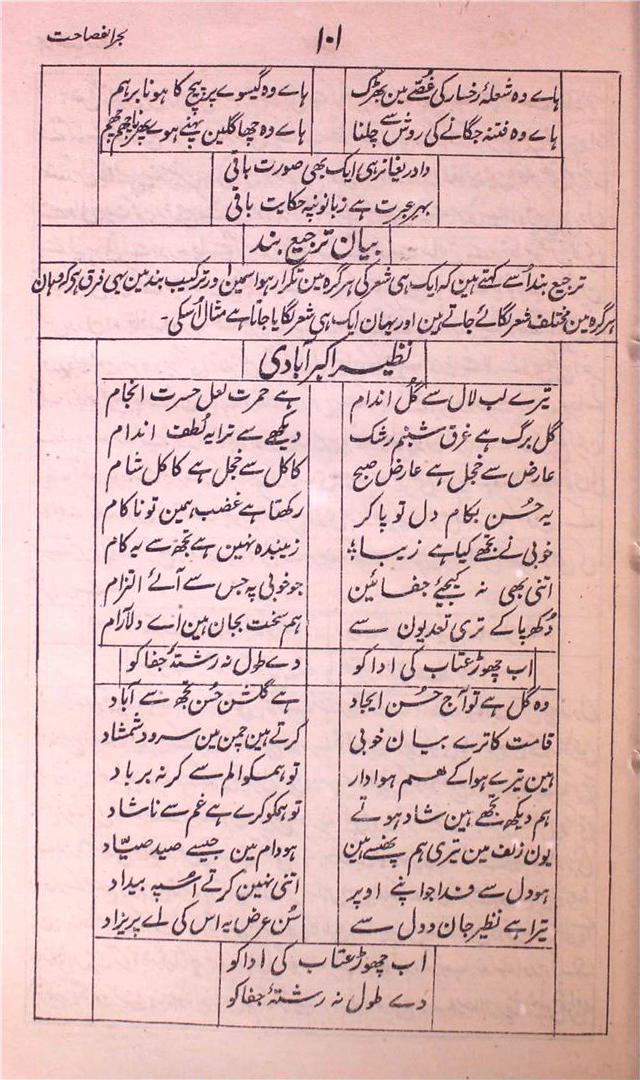 بحر الفصاحت
۱۰۱
ہاے وہ شعلۂ رخسار کی غصّے مین بھڑک ہاے وہ گیسوے پر پیچ کا ہونا برہم
ہاے وہ فتنہ جگانے کی روش سے چلنا ہاے وہ چھاگلین پہنے ہوے پھرنا چھم چھم
دا دریغا نرہی ایک بھی صورت باقی
بہر عبرت ہے زبانونپہ حکایت باقی
بیان ترجیع بند
ترجیع بند اُسے کہتے ہین کہ ایک ہی شعر کی ہر گرہ مین تکرار ہو اسمین اور ترکیب بند مین یہی فرق ہی کہ وہان
ہر گرہ مین مختلف شعر لگائے جاتے ہین اور یہان ایک ہی شعر لگایا جاتا ہے مثال اُسکی۔
نظیر اکبر آبادی
تیرے لب لال سے گل اندام ہے حمرت لعل حسرت انجام
گل برگ ہے غرق شبنم رشک دیکھے سے ترا یہ لُطف اندام
عارض سے خجل ہے عارض صبح کاکل سے خجل ہے کاکل شام
یہ حُسن بکام دل تو پا کر رکھتا ہے غضب ہمین تو ناکام
خوبی نے تجھے کیا ہے زیبا زیبندہ نہین ہے تجھ سے یہ کام
اتنی بھی نہ کیجیے جفائین جو خوبی پہ جس سے آئے الزام
دُکھ پا کے تری تعدیون سے ہم سخت بجان ہین اے دلآرام
اب چھوڑ عتاب کی ادا کو دے طول نہ رشتۂ جفا کو
وہ گل ہے تو آج حُسن ایجاد ہے گلشن حُسن تجھ سے آباد
قامت کا ترے بیان خوبی کرتے ہین چمن مین سرو و شمشاد
ہین تیرے ہوا کے ہم ہوادار تو ہمکو الم سے کر نہ برباد
ہم دیکھ تجھے ہین شاد ہوتے تو ہمکو کرے ہے غم سے ناشاد
یون زلف مین تیری ہم پھنسے ہین ہو دام مین جیسے صید صیّاد
ہو دل سے فدا جو اپنے اوپر اتنی نہین کرتے اُسپہ بیداد
تیرا ہے نظیر جان و دل سے سُن عرض یہ اس کی اے پریزاد
اب چھوڑ عتاب کی ادا کو
دے طول نہ رشتۂ جفا کو